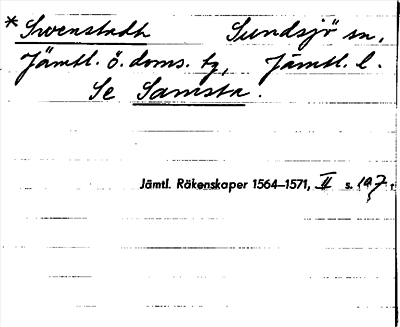 * Swenstadh Sundsjö sn,
Jämtl. ö. doms. tg, Jämtl. l.
Se Samsta.
Jämtl. Räkenskaper 1564–1571, II s. 197.